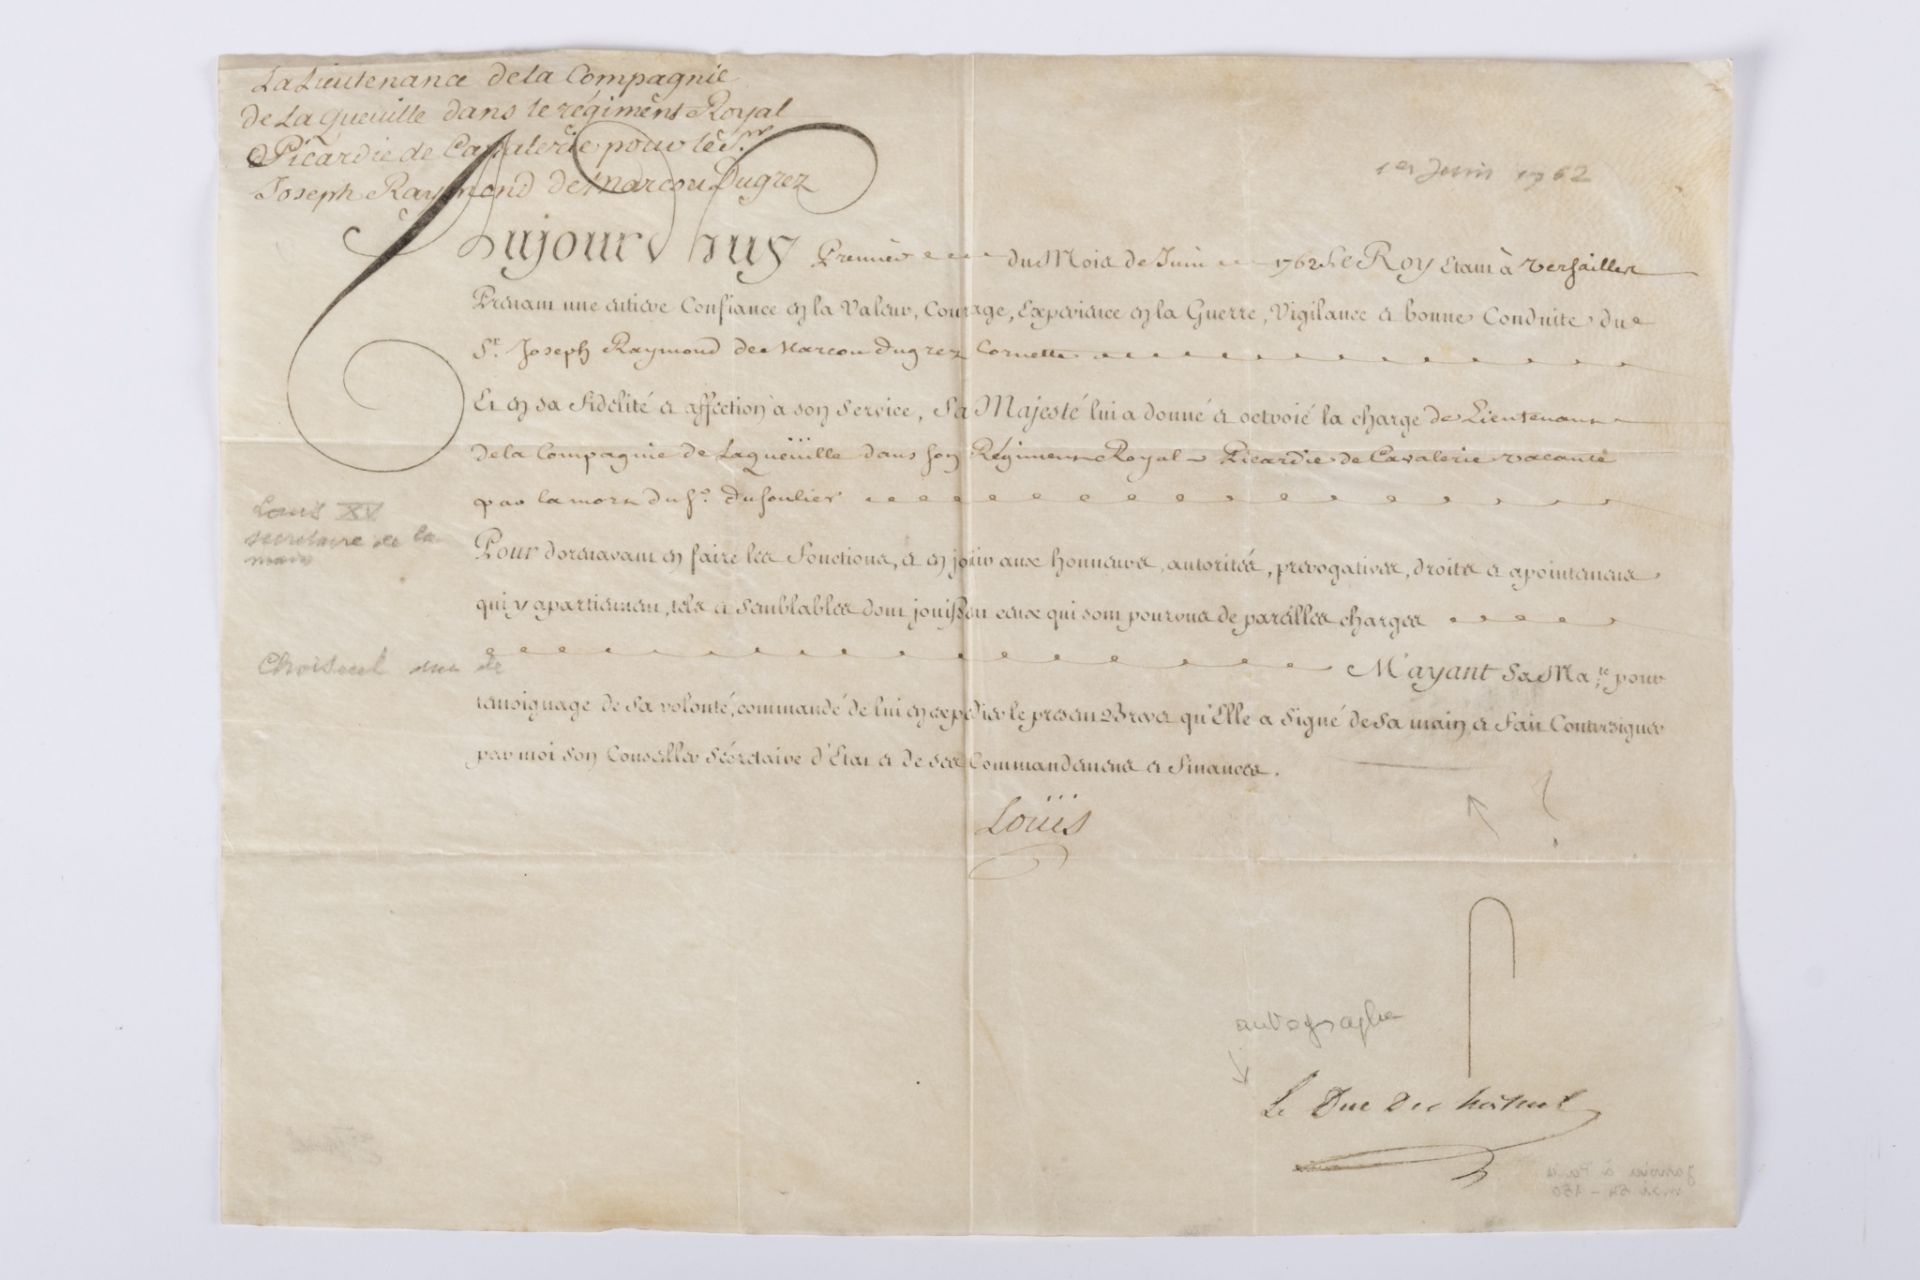 La Lieutenance de la Compagnie
de La queüille dans le régiment Royal
Picardie de Cavalerie pour le Sr.
Joseph Raymond de Marcou Dugrez
1er Juin 1762
Aujourd'huy Premier du Mois de Juin 1762 Le Roy Etant à Versailles
Prenant une entiere Confiance en la Valeur, Courage, Experience en la Guerre, Vigilance et bonne Conduite du
Sr. Joseph Raymond de Marcou Dugrez Cornette
Et en sa fidelité et affection à son service, Sa Majesté lui a donné et octroié la charge de Lieutenant
de la Compagnie de Laqueüille dans son Régiment Royal Picardie de Cavalerie vacante
par la mort du Sr. Dusoulier
Louis XV
secretaire de la
main
Pour dorenavant en faire les fonctions, et en jouir aux honneurs, autorités, prerogatives, droits et apointemens
qui y apartienent, tels et semblables dont jouissent ceux qui sont pourvus de pareilles charges
Choiseul
M'ayant Sa Ma.te pour
temoignage de sa volonté, commandé de lui en expedier le present Brevet qu'Elle a signé de sa main et fait Contresigner
par moi son Conseiller Sécretaire d'Etat et de ses Commandemens et finances.
Loüis
?
autographe
Le Duc De choiseul